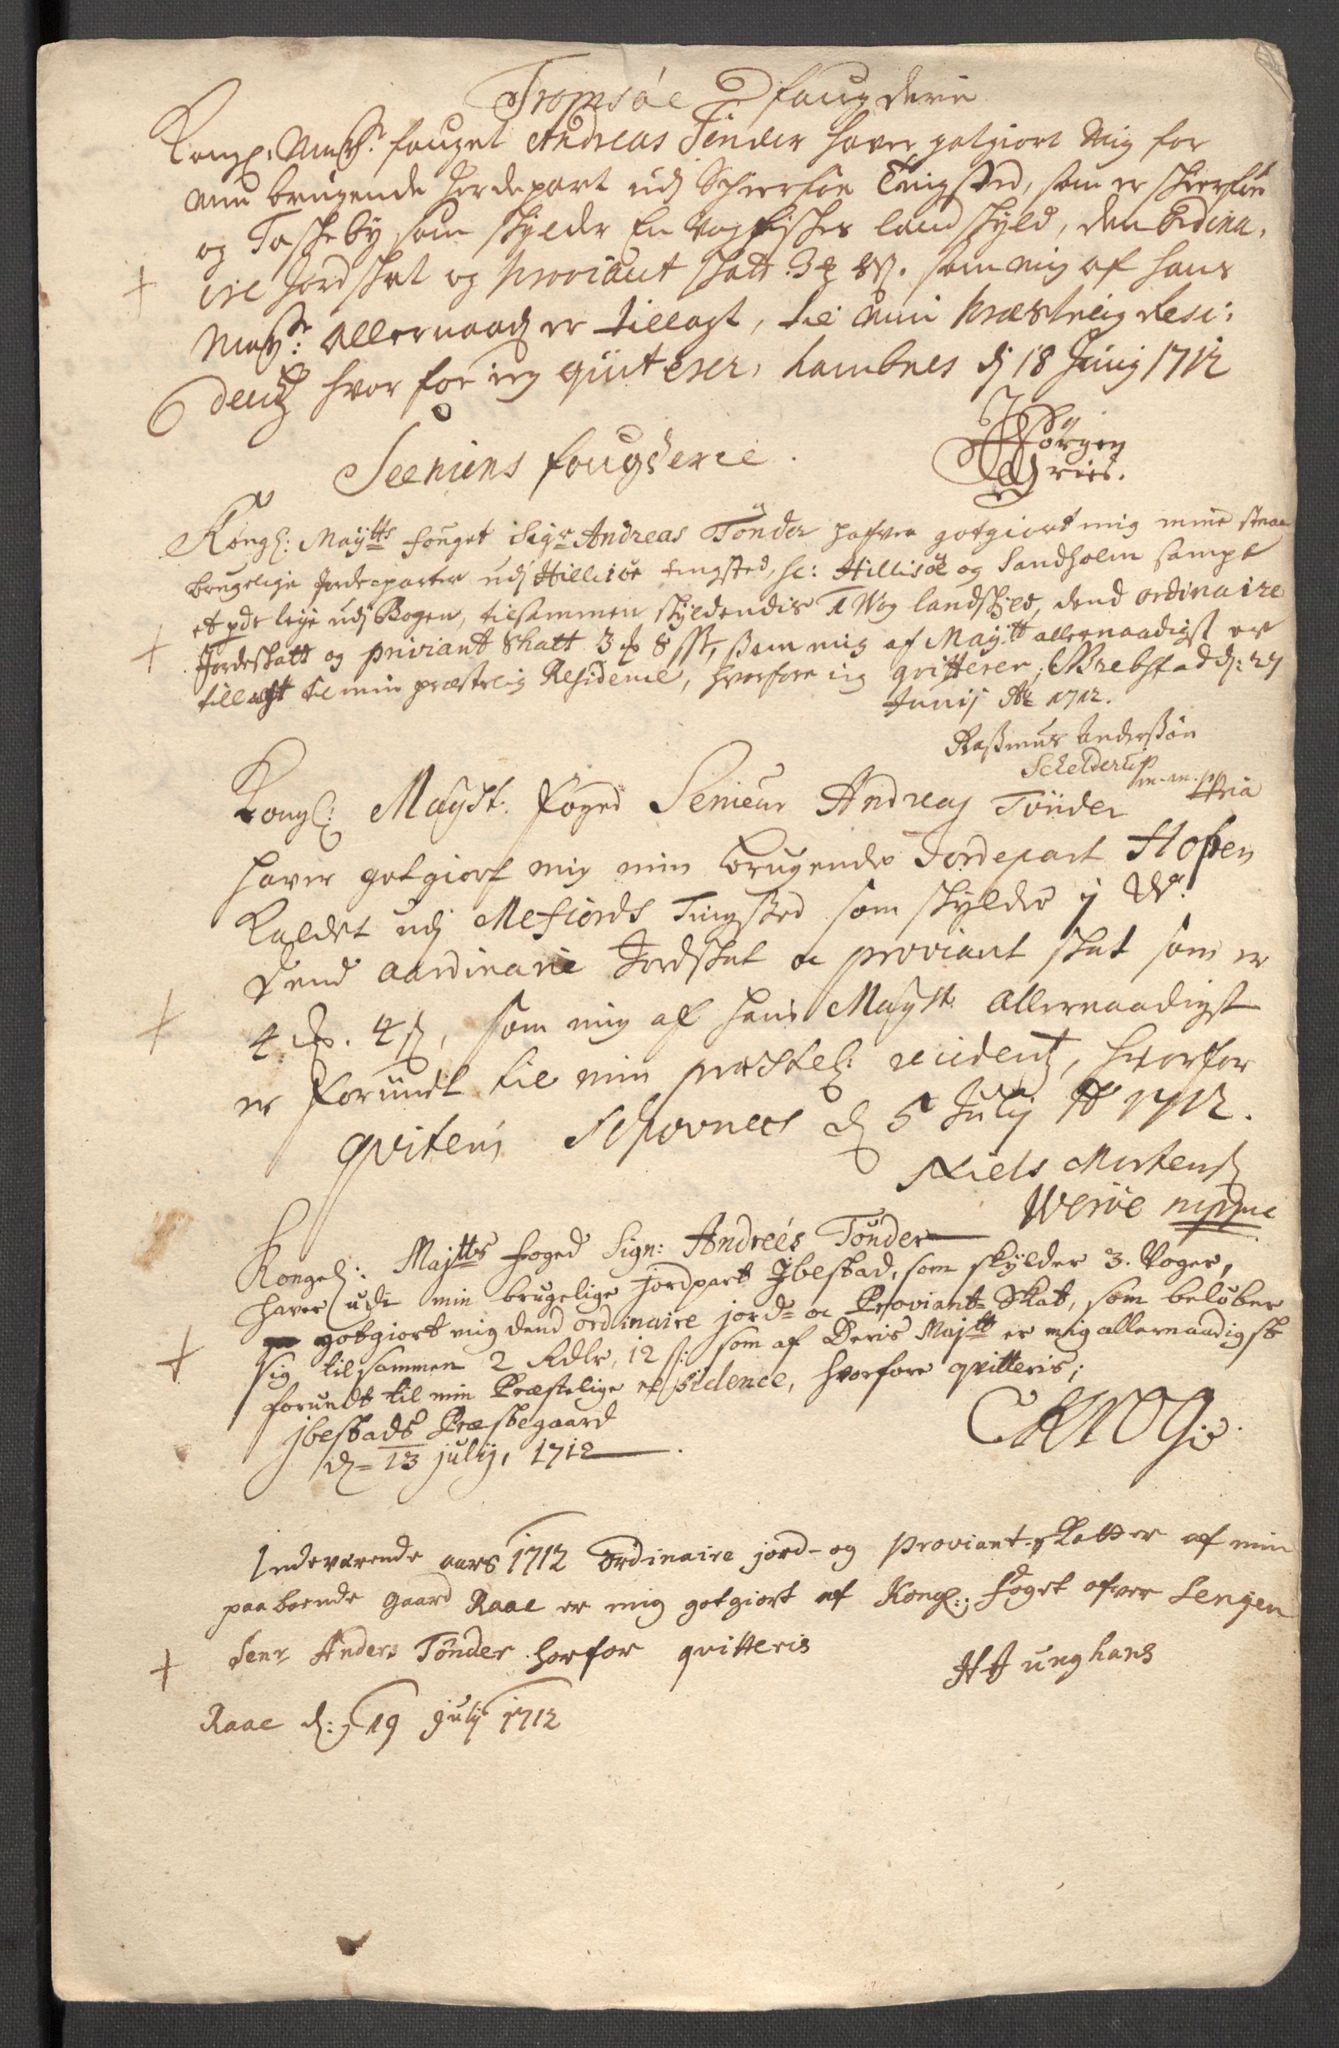 Tromsøe fougderie
Kongl: Maysts: fouget Andreas Tønder haver gotgiort Mig for
min brugende Jordepart udj Schierføe Tingsted, som er Schierføe
og Tascheby som skylder En Vog fisches landskyld, den Ordina,
ire Jordskat og Proviant skatt 3 8 s. som mig af hans
Mayst: Allernaadst er tillagt, til min Præstelig Resi:
dentz hvor for ieg qviterer, Hambnes dj 18 Junij 1712
Jørgen
Gries.
Seeniens fougderie.
Kongl: Maytts fouget Sigr Andreas Tønder hafver gotgiort mig mine
brugelige Jordeparter udj Hillisøe tingsted, sc: Hillisøe og Sandholm sampt
et pdr leye udj Bogen, tilsammen skyldendis 1 Wog landskyld, dend ordinaire
Jordeskatt og priviant Skatt 3 8 s, som mig af Maytt allernaadigst er
tillagt til min præstelig Residence, hvorfore ieg qvitterer, d: 27
Junij Ao 1712.
Rasmus Anderssøn
Schelderup
m. m. ppria
Kongl: Mayst: Foged Senieur Andreas Tønder
haver gotgiort mig min brugende Jordepart Hofsen
Kaldet udj Mefiords Tingsted som skylder j W:
Dend aardinarie Jordskat oc proviant skat som er
4 . 4 s, som mig af hans Mayst: Allernaadigst
er forundt til min præstel: residentz, hvorfor
qviteris d 5 Julij Ao 1712.
Niels Mortens
Werøe mppria
Kongel: Majtts foged Sign: Andreas Tønder
haver udi min brugelige jordpart Jbestad, som skylder 3. Voger,
gotgiort mig dend ordinaire jord- oc Proviant- Skat, som beløber
sig tilsammen 2 Rdlr, 12 s: som af Deris Majtt er mig allernaadigst
forundt til min Præstelige residence, hvorfore qvitteris;
jbestads Præstegaard
d= 13 julij, 1712
CKrog
Indeværende aars 1712 Ordinaire jord- og Proviant-skatter af min
paaboende Gaard Raae er mig gotgiort af Kongl: Foget ofver Senjen
Senr Anders Tønder. horfor qvitteris
H Junghans
Raae d: 19 Julij 1712